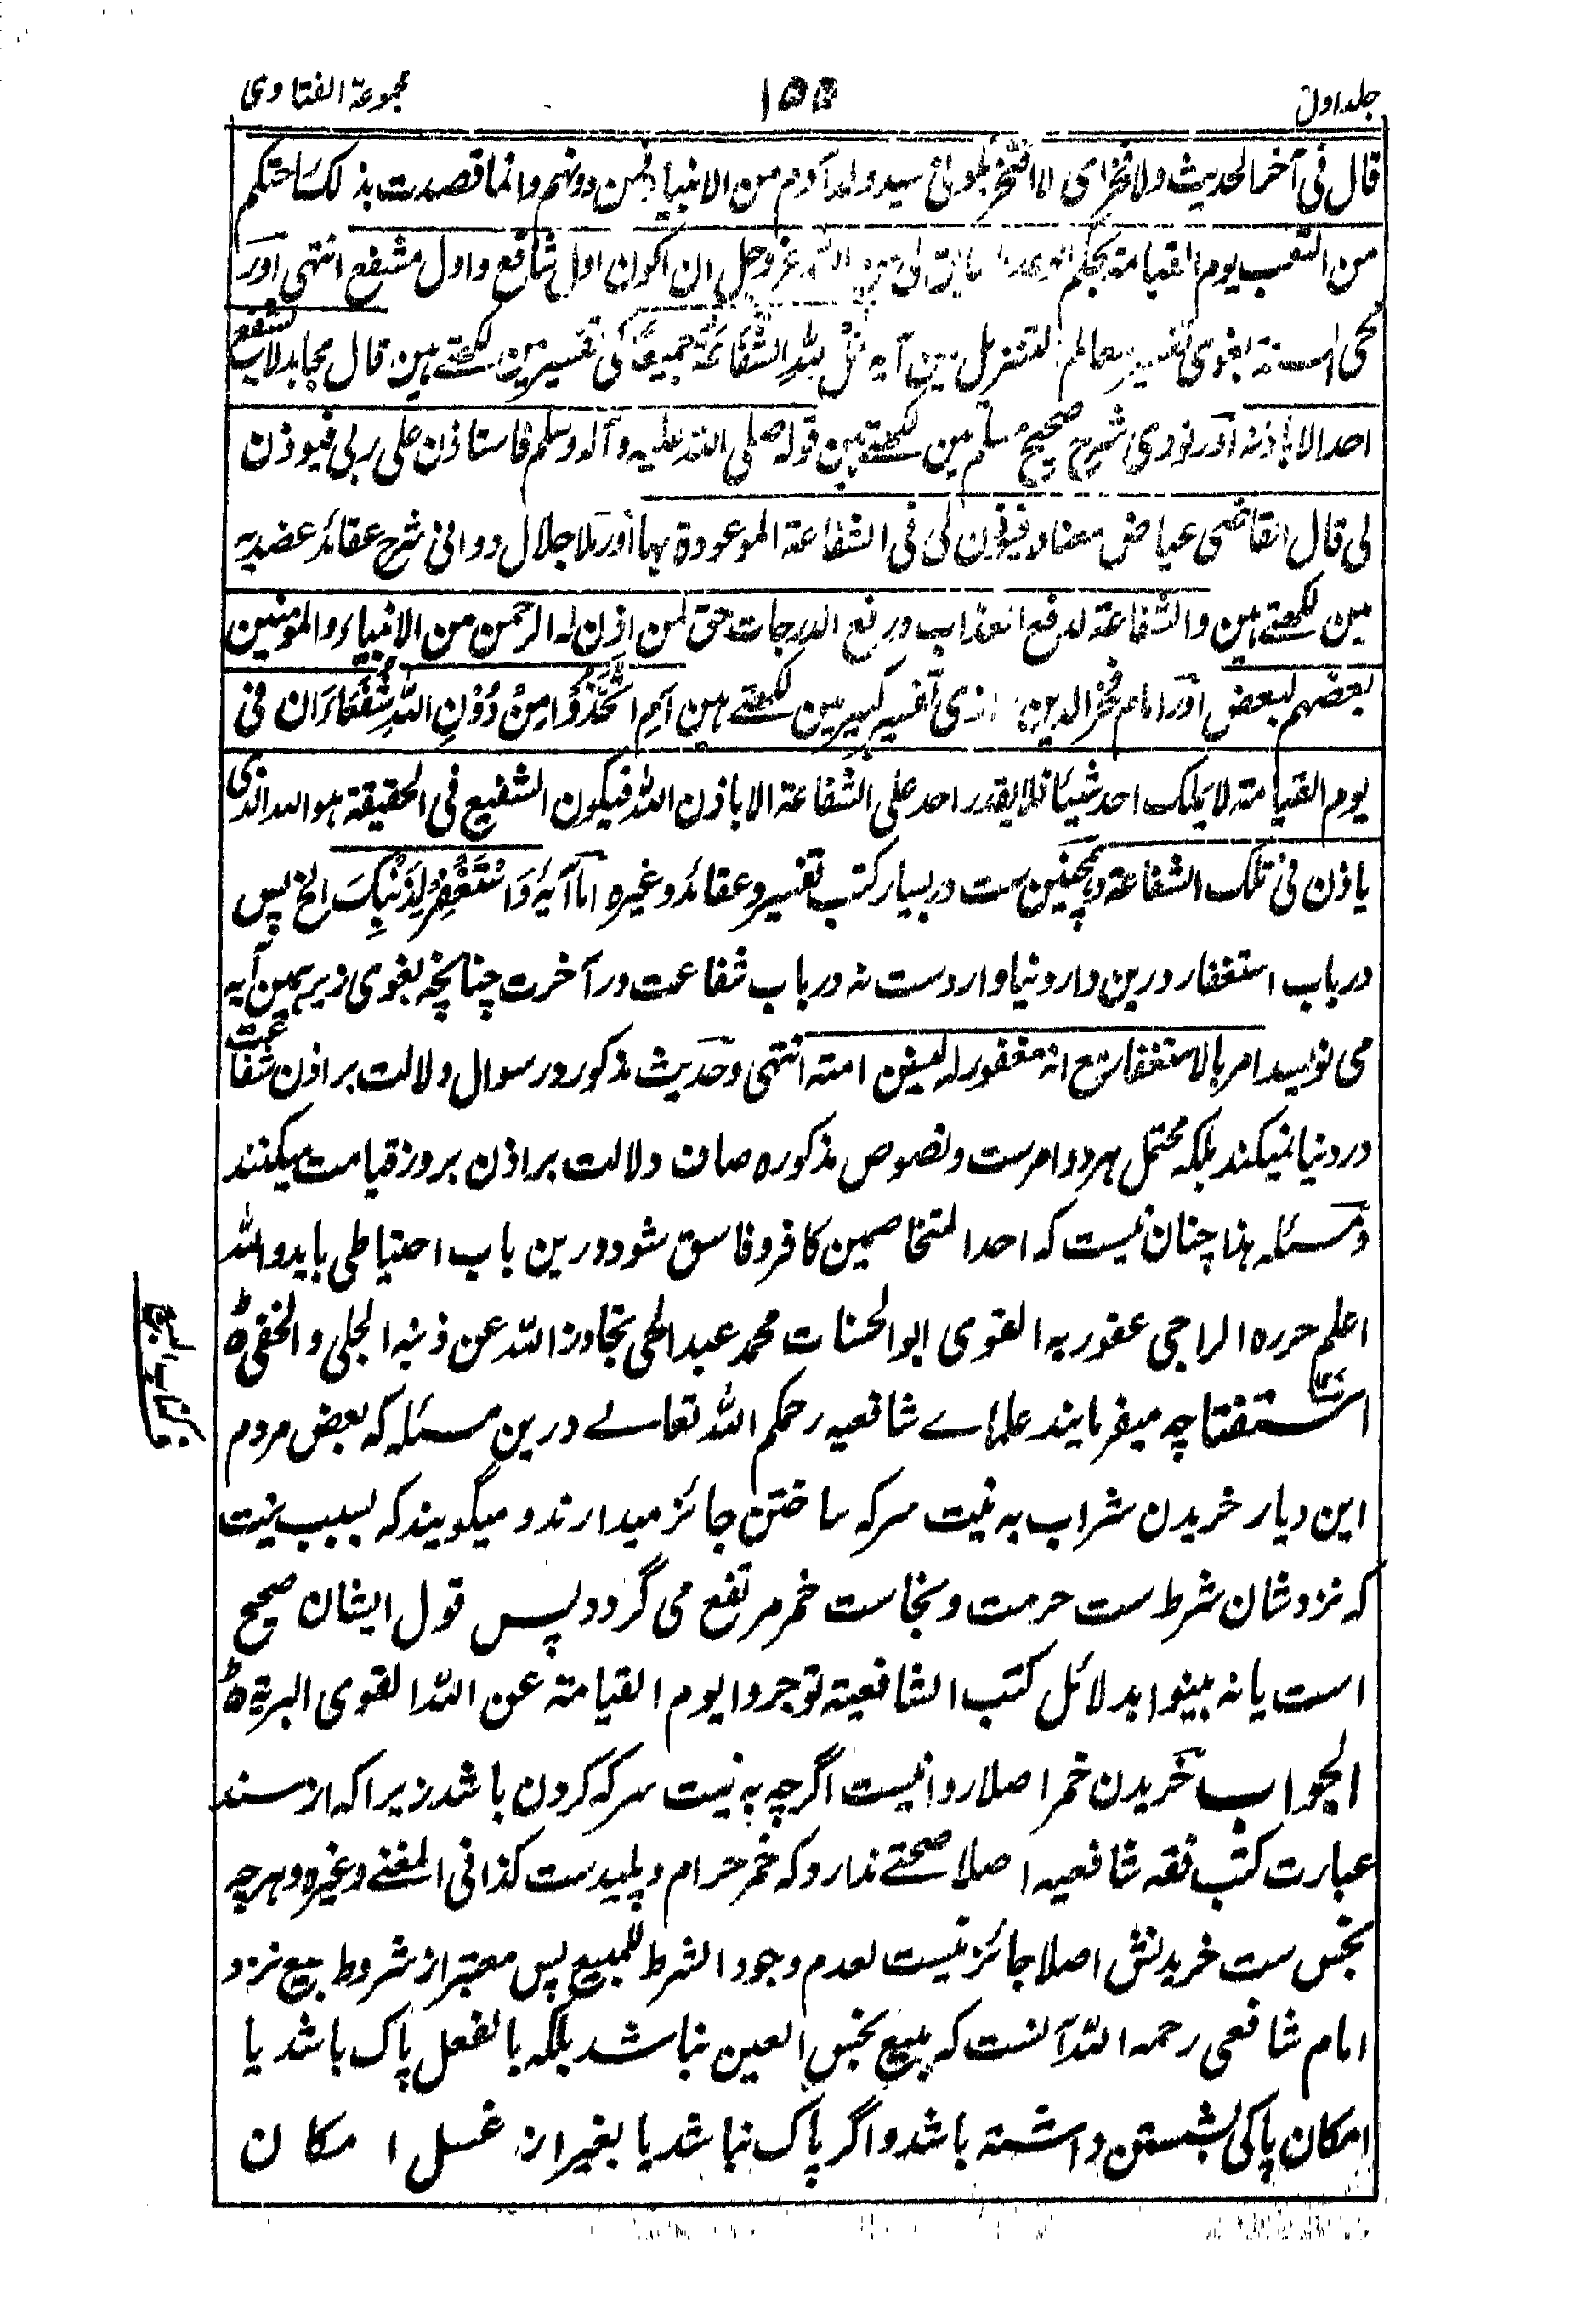 جلد اول ۱۵۵ مجموعۃ الفتاوی
قال فی آخر الحدیث ولا فخر ای لا افتخر بکونی سید ولد آدم من الانبیاء فمن دونهم وانما قصدت بذلک راحتکم
من التعب یوم القیامۃ بحکم الوعد السابق لی من اللہ عزوجل ان اکون اول شافع واول مشفع انتہی اور
محی السنۃ بغوی تفسیر معالم التنزیل مین آیہ قُلْ لِلّٰہِ الشَّفَاعَۃُ جَمِیْعًا کی تفسیر مین لکھتے ہین قال مجاہد لا یشفع
احد الا باذنہ اور نووی شرح صحیح مسلم مین لکھتے ہین قولہ صلی اللہ علیہ وآلہ وسلم فاستاذن علی ربی فیوذن
لی قال القاضی عیاض معناہ فیوذن لی فی الشفاعۃ الموعودۃ بہا اور ملا جلال دوانی شرح عقائد عضدیہ
مین لکھتے ہین والشفاعۃ لدفع العذاب ورفع الدرجات حق لمن اذن لہ الرحمن من الانبیاء والمومنین
بعضہم لبعض اور امام فخر الدین رازی تفسیر کبیر مین لکھتے ہین اَمِ اتَّخَذُوْا مِنْ دُوْنِ اللّٰہِ شُفَعَاءَ ان فی
یوم القیامۃ لا یملک احد شیئا فلا یقدر احد علی الشفاعۃ الا باذن اللہ فیکون الشفیع فی الحقیقۃ ہو اللہ الذی
یاذن فی تلک الشفاعۃ وہمچنین ست در بسیار کتب تفسیر وعقائد وغیرہ اما آیۂ وَاسْتَغْفِرْ لِذَنْبِکَ الخ پس
در باب استغفار درین دار دنیا وارد ست نہ در باب شفاعت در آخرت چنانچہ بغوی زیر ہمین آیہ
می نویسد امر بالاستغفار مع انہ مغفور لہ لیستن امتہ انتہی وحدیث مذکور در سوال دلالت بر اذن شفاعت
در دنیا نمیکند بلکہ محتمل ہر دو امر ست ونصوص مذکورہ صاف دلالت بر اذن بروز قیامت میکنند
ومسئلہ ہذا چنان نیست کہ احد المتخاصمین کافر وفاسق شود درین باب احتیاطی باید واللہ
اعلم حررہ الراجی عفو ربہ القوی ابو الحسنات محمد عبد الحی تجاوز اللہ عن ذنبہ الجلی والخفی ہ
استفتا چہ میفرمایند علماے شافعیہ رحمکم اللہ تعالے درین مسئلہ کہ بعض مردم
این دیار خریدن شراب بہ نیت سرکہ ساختن جائز میدارند و میگویند کہ بسبب نیت
کہ نزد شان شرط ست حرمت ونجاست خمر مرتفع می گردد پس قول ایشان صحیح
است یا نہ بینوا بدلائل کتب الشافعیۃ توجروا یوم القیامۃ عن اللہ القوی البریۃ ہ
الجواب خریدن خمر اصلا روا نیست اگرچہ بہ نیت سرکہ کردن باشد زیرا کہ از سند
عبارت کتب فقہ شافعیہ اصلا صحتے ندارد کہ خمر حرام وپلید ست کذا فی المغنے وغیرہ وہرچہ
نجس ست خریدنش اصلا جائز نیست لعدم وجود الشرط للمبیع پس معتبر از شروط بیع نزد
امام شافعی رحمہ اللہ آنست کہ مبیع نجس العین نباشد بلکہ بالفعل پاک باشد یا
امکان پاکی بشستن داشتہ باشد واگر پاک نباشد یا بغیر از غسل امکان